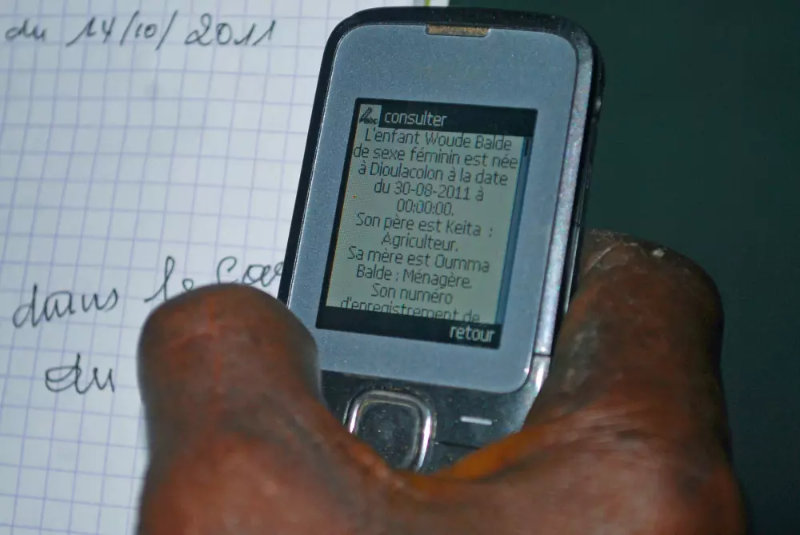 du 14/10/2011
consulter
L'enfant Woude Balde
de sexe féminin est née
à Dioulacolon à la date
du 30-08-2011 à
00:00:00.
Son père est Keita :
Agriculteur.
Sa mère est Oumma
Balde : Ménagère.
Son numéro
d'enregistrement de
retour
dans le
du